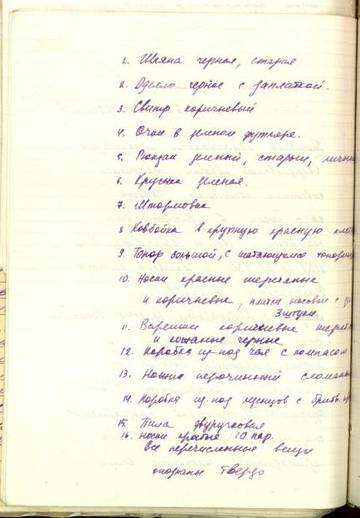 1. Шляпа черная, старая
2. Одеяло черное с заплаткой.
3. Свитр коричневый
4. Очки в зеленом футляре.
5. Рюкзак зеленый, старый,
6. Кружка зеленая.
7. Штормовка
8 Ковбойка в крупную красную
9. Топор большой, с
10. Носки красные шерстяные
и коричневые, платки носовые с
3 штуки.
11. Варежки коричневые
и кожаные черные
12. Коробка из-под чая с компасом
13. Ножик перочинный
14. Коробка из-под леденцов с
15. Пила двуручковая
16. носки простые 10 пар.
Все перечисленные вещи
опознаны твердо